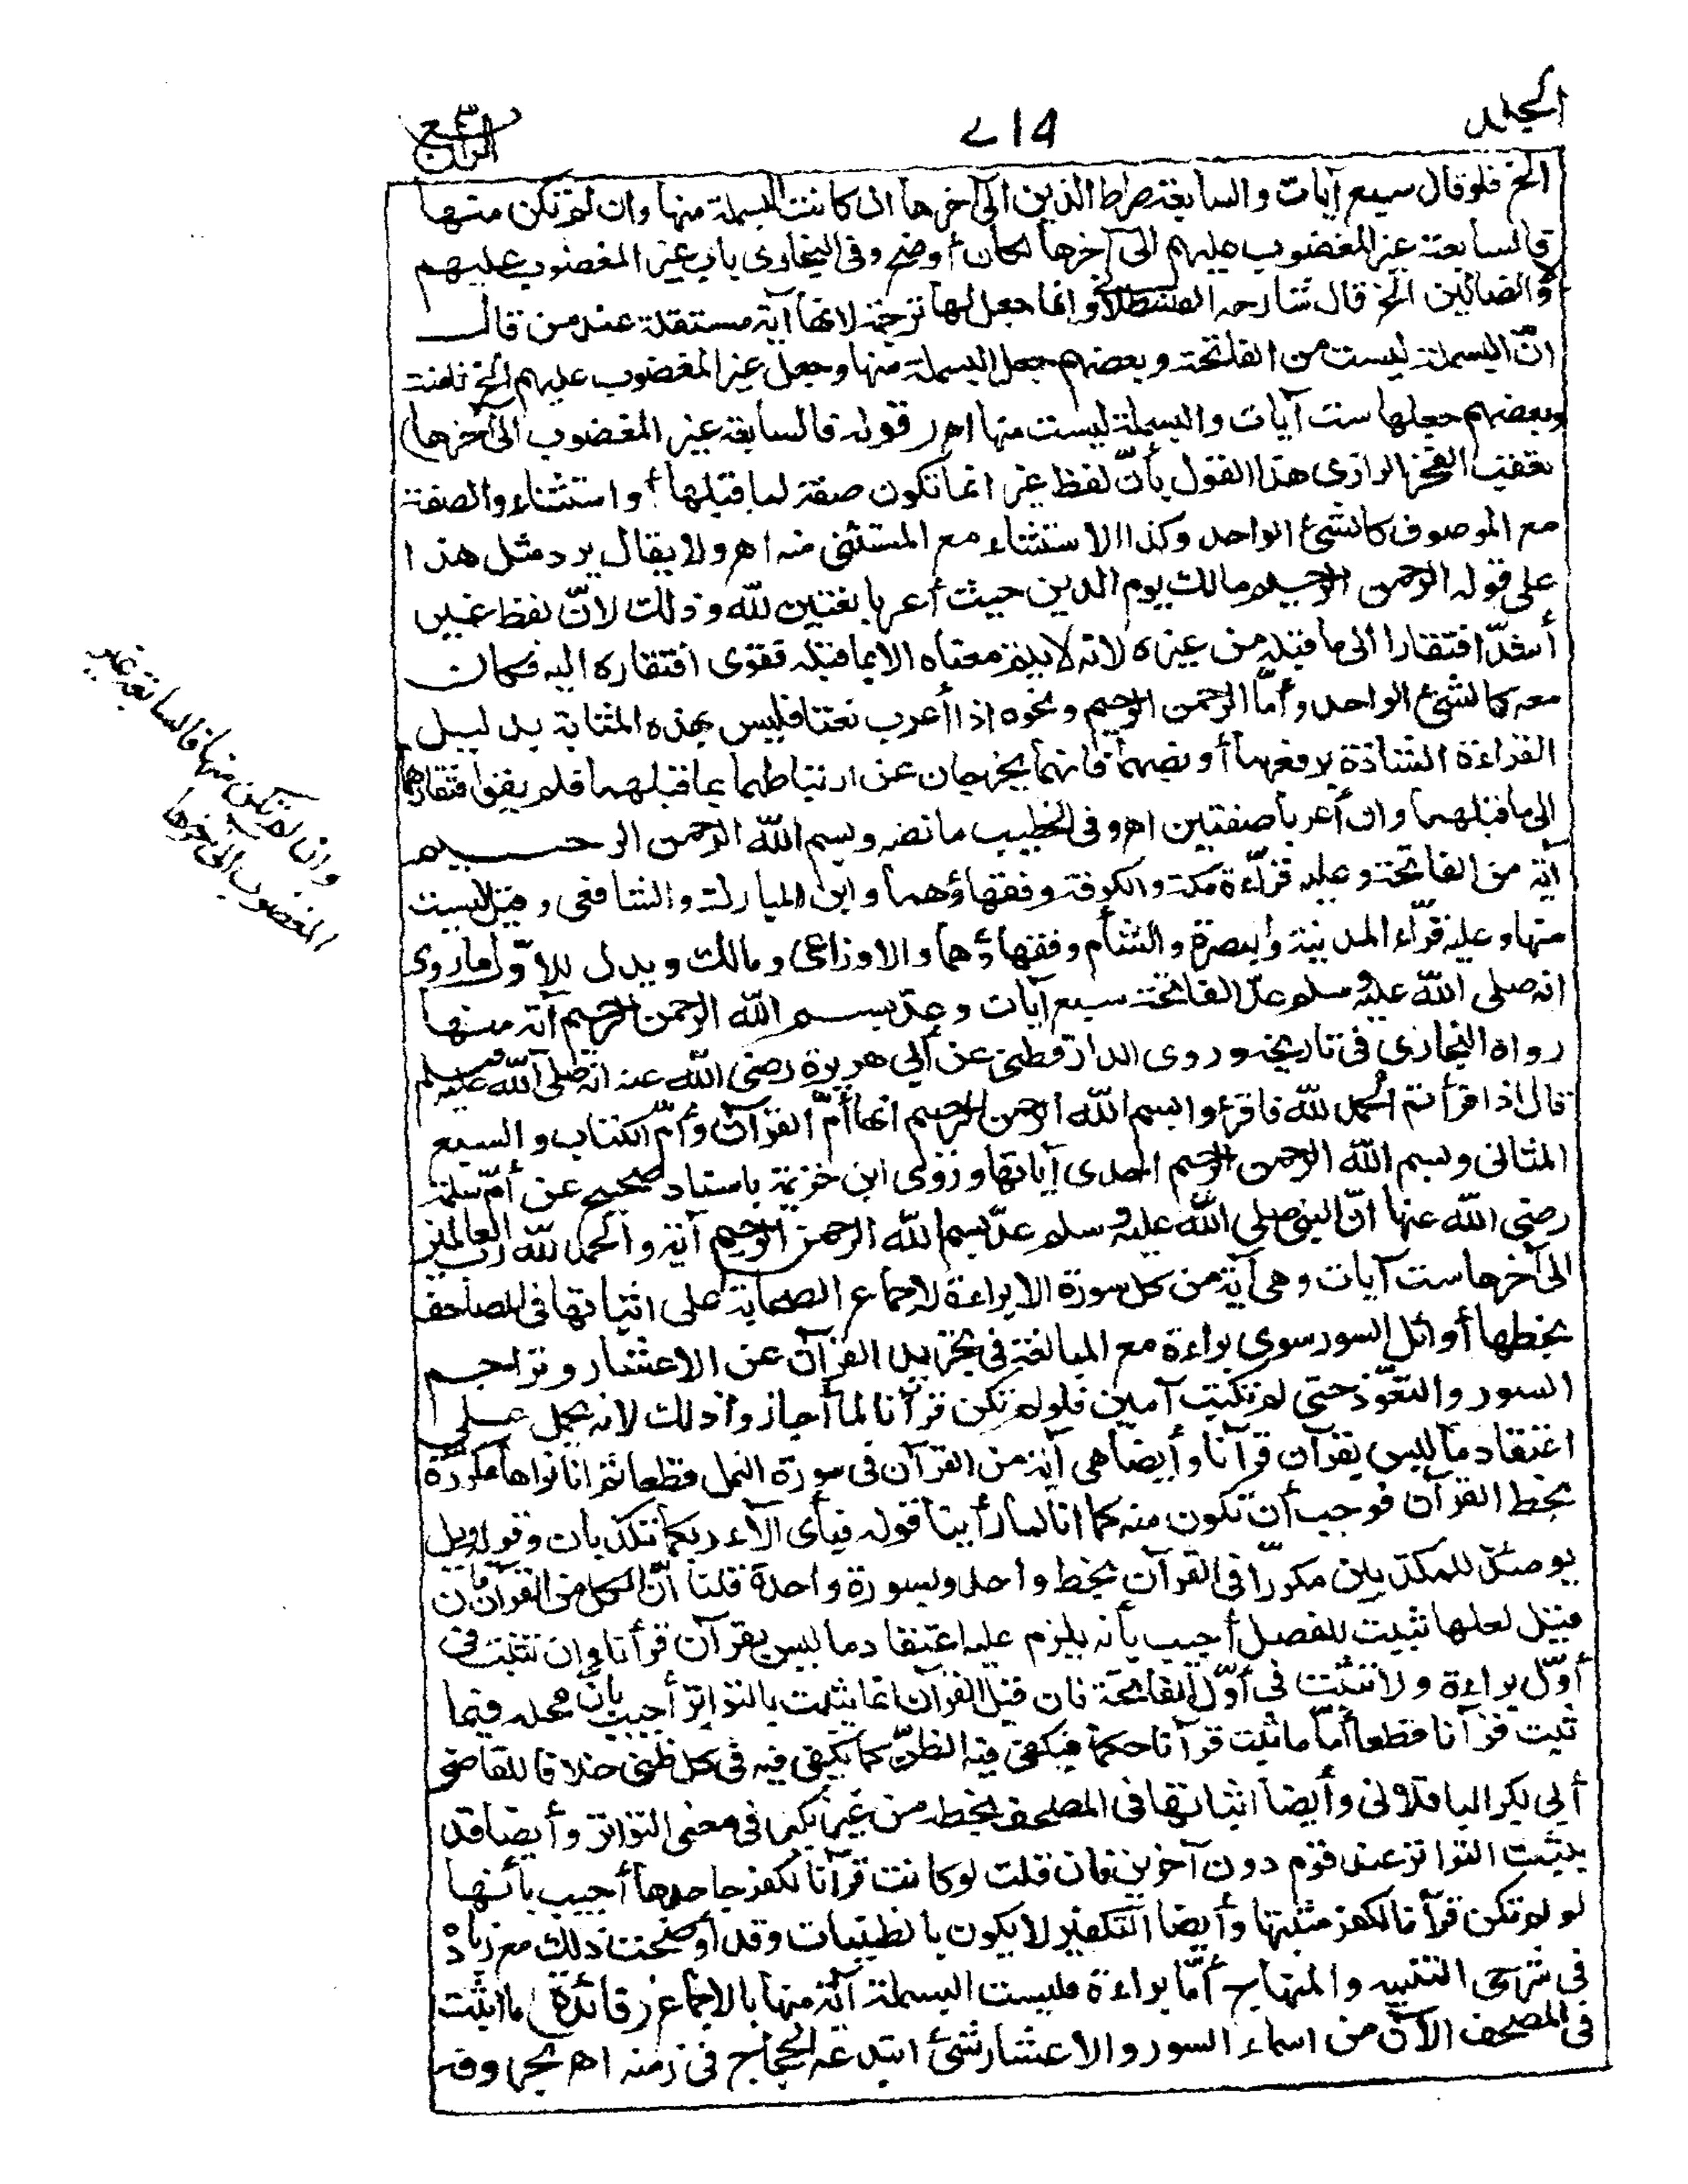 المجلد
٧١٩
الرابع
الخ فلو قال سبع آيات والسابعة صراط الذين الى آخرها ان كانت البسملة منها وان لم تكن منها
فالسابعة غير المغضوب عليهم الى آخرها لكان أوضح وفى البخارى باب غير المغضوب عليهم
ولا الضالين الخ قال شارحه القسطلانى وانما جعل لها ترجمة لانها آية مستقلة عند من قال
انّ البسملة ليست من الفاتحة وبعضهم جعل البسملة منها وجعل غير المغضوب عليهم الخ
وبعضهم جعلها ست آيات والبسملة ليست منها اهـ (قوله فالسابعة غير المغضوب الى آخرها)
تعقب الفخر الرازى هذا القول بأنّ لفظ غير انما تكون صفة لما قبلها أو استثناء والصفة
مع الموصوف كالشئ الواحد وكذا الاستثناء مع المستثنى منه اهـ ولا يقال يرد مثل هذا
على قوله الرحمن الرحيم مالك يوم الدين حيث أعربا نعتين لله وذلك لانّ لفظ غير
أشدّ افتقارا الى ما قبله من غيره لانه لا يلزم معناه الا بما قبله فقوى افتقاره اليه فكان
معه كالشئ الواحد وأمّا الرحمن الرحيم ونحوه اذا أعرب نعتا فليس بهذه المثابة بدليل
القراءة الشاذة برفعهما أو نصبهما فانهما يخرجان عن ارتباطهما بما قبلهما فلم يقو افتقارهما
الى ما قبلهما وان أعربا صفتين اهـ وفى الخطيب ما نصه وبسم الله الرحمن الرحيم
آية من الفاتحة وعليه قرّاءة مكة والكوفة وفقهاؤهما وابن المبارك والشافعى وقيل ليست
منها وعليه قرّاء المدينة والبصرة والشأم وفقهاؤهما والاوزاعى ومالك ويدل للأوّل ما روى
انه صلى الله عليه وسلم عدّ الفاتحة سبع آيات وعدّ بسم الله الرحمن الرحيم آية منها
رواه البخارى فى تاريخه وروى الدارقطنى عن أبى هريرة رضى الله عنه انه صلى الله عليه وسلم
قال اذا قرأتم الحمد لله فاقرؤا بسم الله الرحمن الرحيم انها أمّ القرآن وأمّ الكتاب والسبع
المثانى وبسم الله الرحمن الرحيم احدى آياتها وروى ابن خزيمة باسناد صحيح عن أمّ سلمة
رضى الله عنها انّ النبى صلى الله عليه وسلم عدّ بسم الله الرحمن الرحيم آية والحمد لله رب العالمين
الى آخرها ست آيات وهى آية من كل سورة الا براءة لاجماع الصحابة على اثباتها فى المصاحف
بخطها أوائل السور سوى براءة مع المبالغة فى تجريد القرآن عن الاعشار وتراجم
السور والتعوّذ حتى لم تكتب آمين فلو لم تكن قرآنا لما أجازوا ذلك لانه يحمل على
اعتقاد ما ليس بقرآن قرآنا وأيضا هى آية من القرآن فى سورة النمل قطعا ثم انا نراها مكررة
بخط القرآن فوجب أن تكون منه كما انا لما رأينا قوله فبأى الآء ربكما تكذبان وقوله ويل
يومئذ للمكذبين مكررّا فى القرآن بخط واحد وبسورة واحدة قلنا انّ الكل من القرآن فان
قيل لعلها تثبت للفصل أجيب بأنه يلزم عليه اعتقاد ما ليس بقرآن قرأنا وان تثبت فى
أوّل براءة ولا تثبت فى أوّل الفاتحة فان قيل القرآن انما يثبت بالتواتر أجيب بانّ محله فيما
ثبت قرآنا قطعا أمّا ما ثبت قرآنا حكما فيكفى فيه الظنّ كما يكفى فيه فى كل ظنى خلافا للقاضى
أبى بكر الباقلانى وأيضا اثباتها فى المصحف بخطه من غير نكير فى معنى التواتر وأيضا قد
يثبت التواتر عند قوم دون آخرين فان قلت لو كانت قرآنا لكفر جاحدها أجيب بأنها
لو لم تكن قرآنا لكفر مثبتها وأيضا التكفير لا يكون بالظنيات وقد أوضحت ذلك مع زيادة
فى شرحى التنبيه والمنهاج أمّا براءة فليست البسملة آية منها بالاجماع (فائدة) ما اثبت
فى المصحف الآن من اسماء السور والاعشار شئ ابتدعه الحجاج فى زمنه اهـ بحروفه
وان لم تكن منها فالسابعة غير
المغضوب الى آخرها